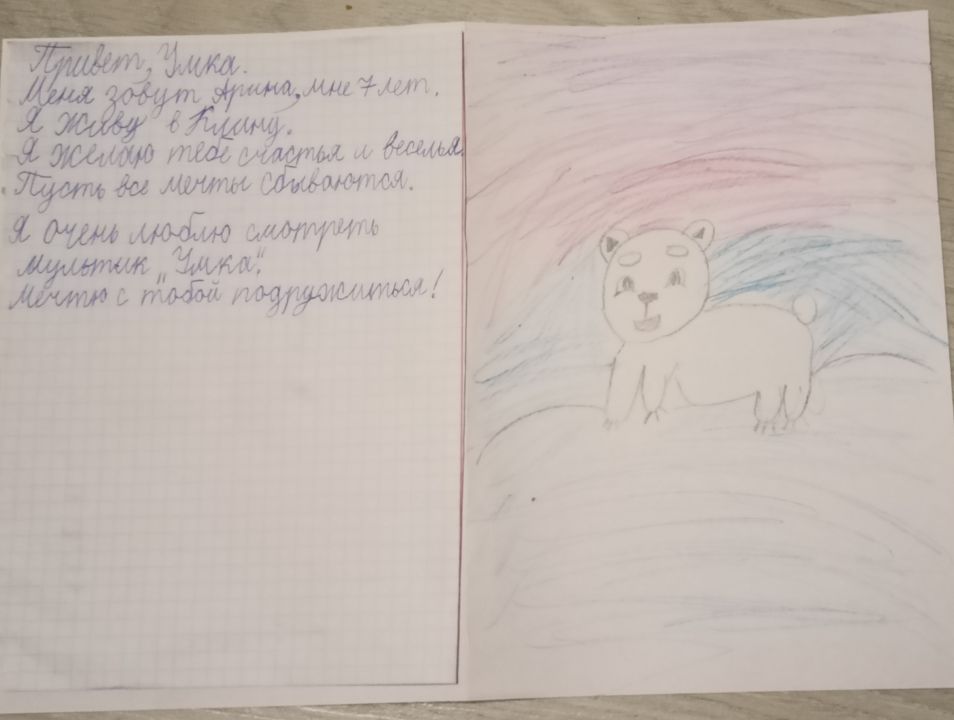 Привет, Умка.
Меня зовут Арина, мне 7 лет.
Я живу в Клину.
Я желаю тебе счастья и веселья.
Пусть все мечты сбываются.
Я очень люблю смотреть
мультик „Умка".
Мечтю с тобой подружиться!